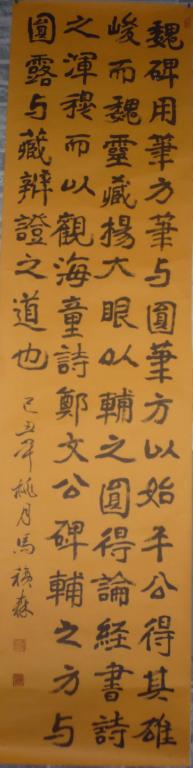 魏碑用筆方筆与圓筆方以始平公得其雄
峻而魏靈藏楊大眼以輔之圓得論経書詩
之渾穆而以觀海童詩鄭文公碑輔之方与
圓露与藏辯證之道也
己丑年桃月馬福森